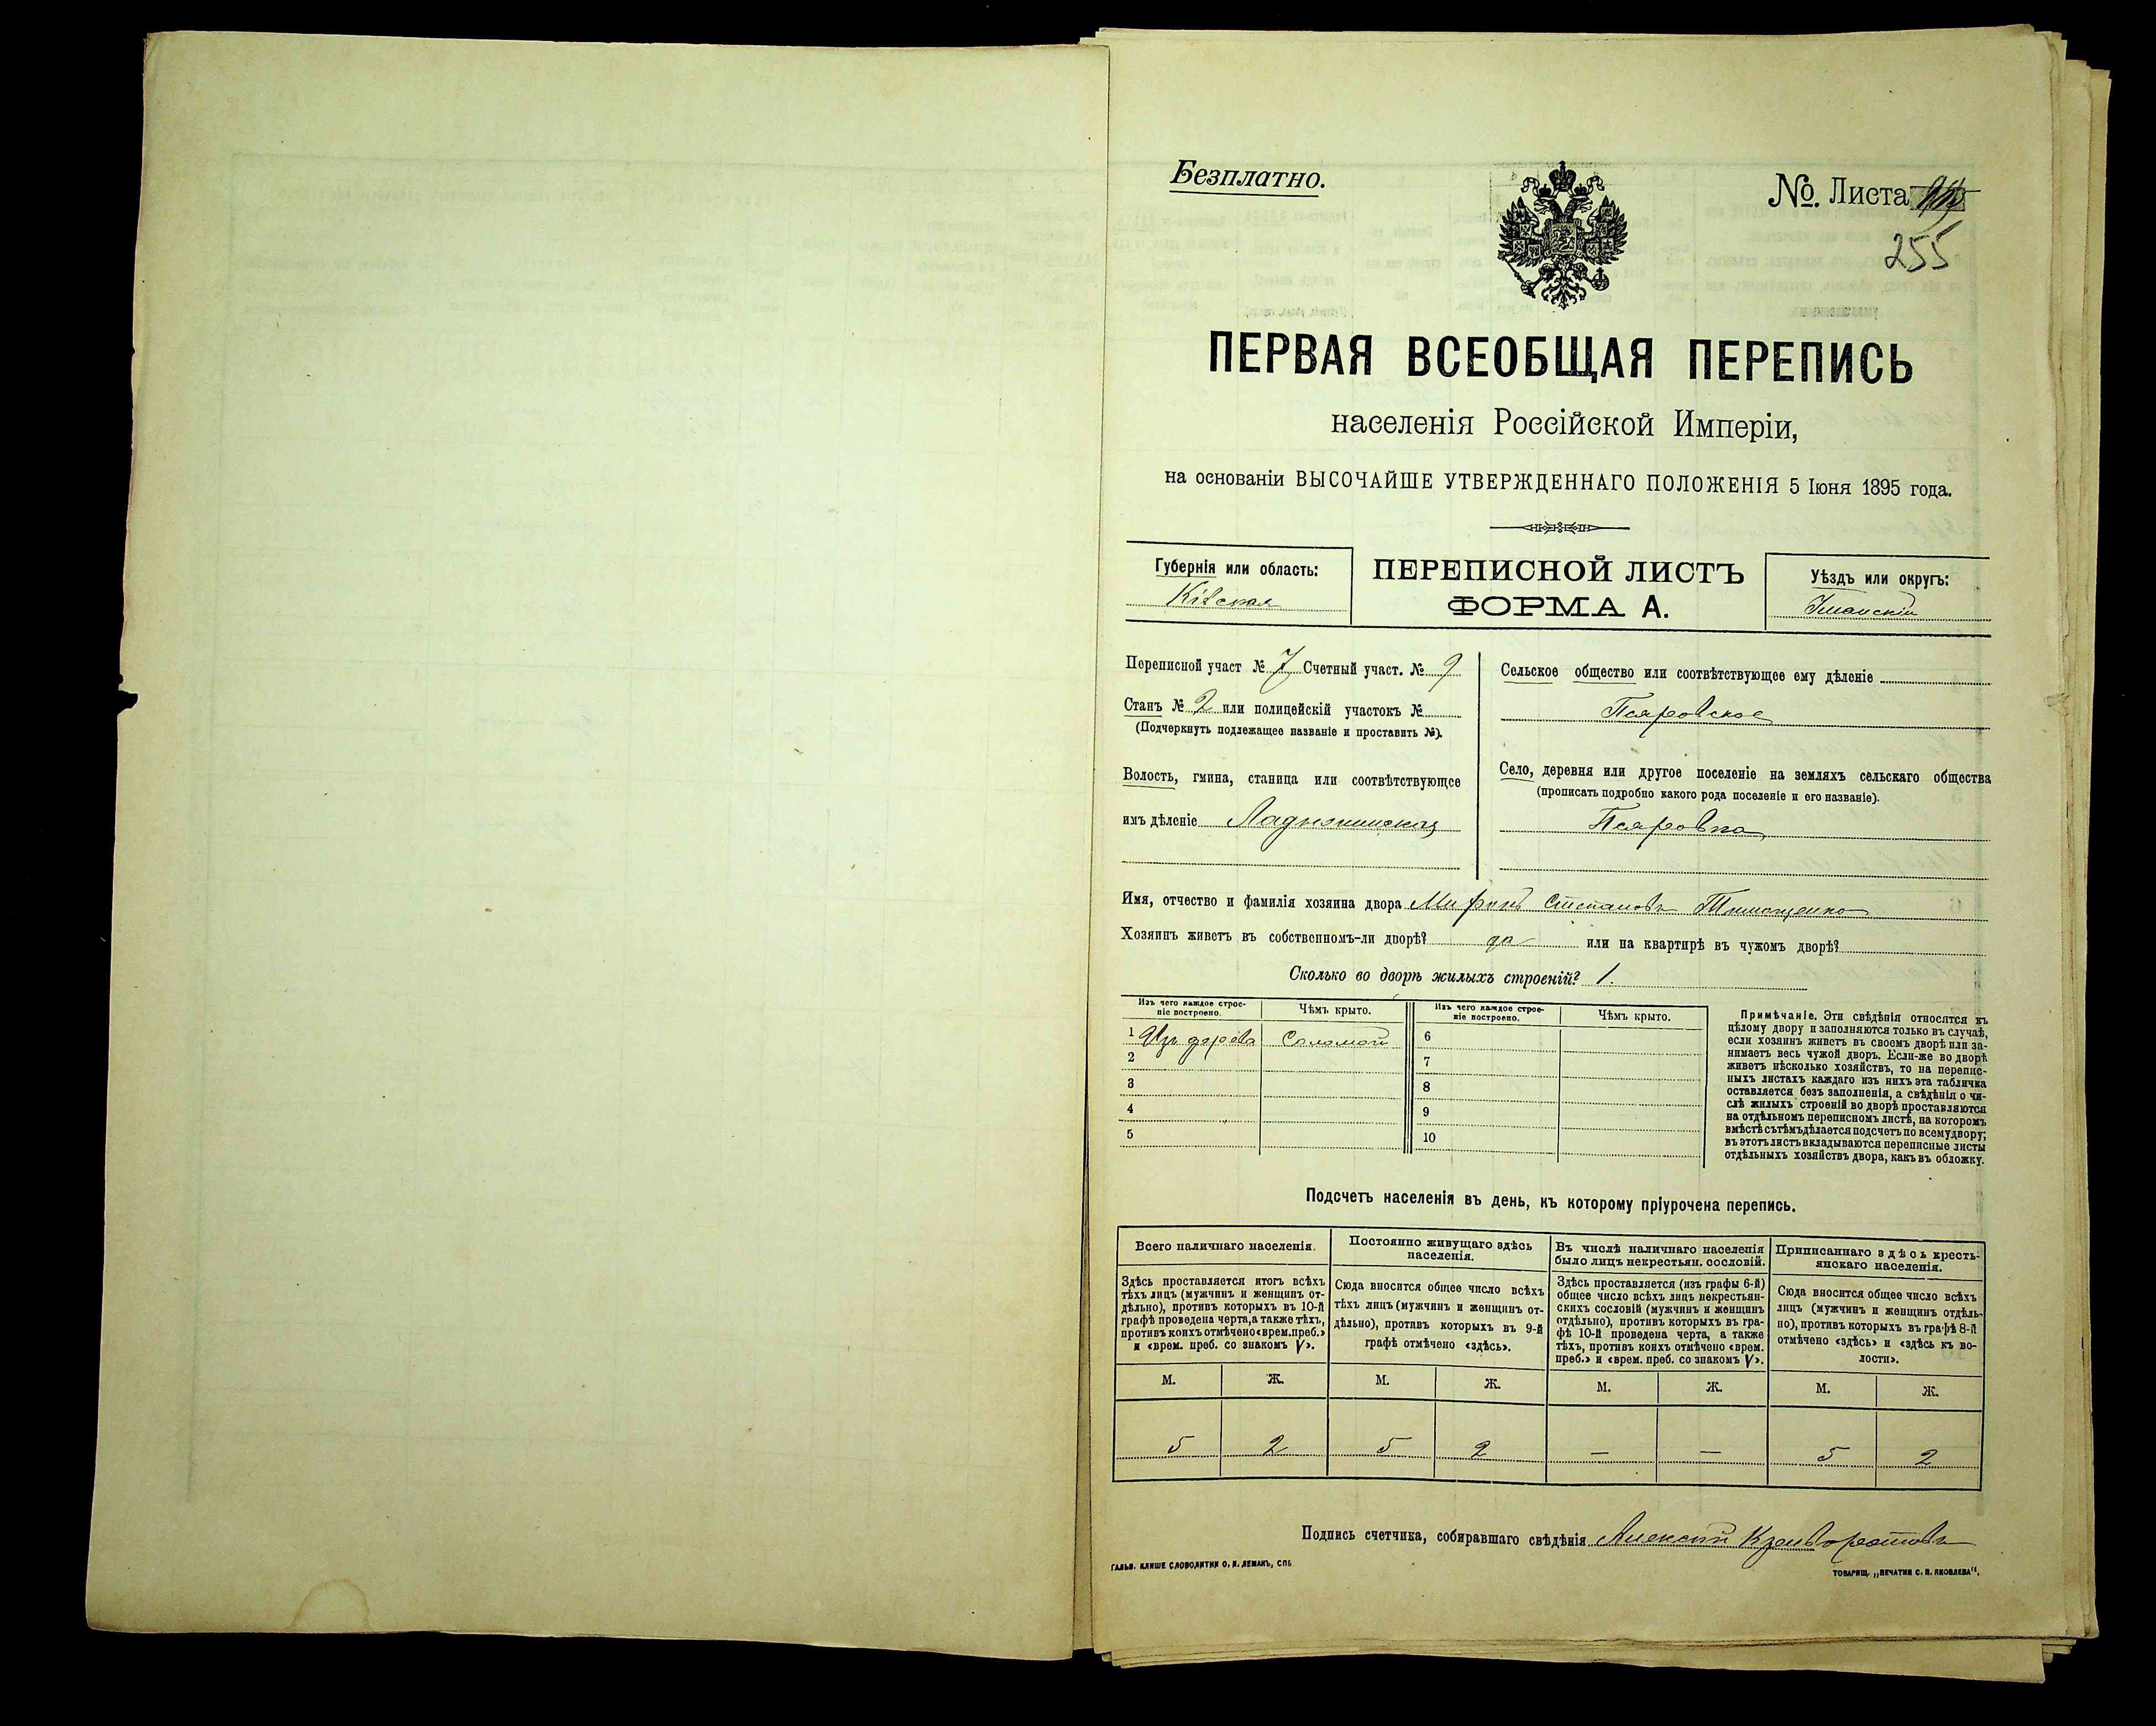 Безплатно.
№. Листа
255
ПЕРВАЯ ВСЕОБЩАЯ ПЕРЕПИСЬ
населенія Россійской Имперіи,
на основаніи ВЫСОЧАЙШЕ УТВЕРЖДЕННАГО ПОЛОЖЕНІЯ 5 Іюня 1895 года.
Губернія или область:
Кіевская
ПЕРЕПИСНОЙ ЛИСТЪ
ФОРМА А.
Уѣздъ или округъ:
Уманскій
Переписной участ № 7 Счетный участ. № 9
Станъ № 2 или полицейскій участокъ №
(Подчеркнуть подлежащее названіе и проставить №).
Волость, гмина, станица или соотвѣтствующее
имъ дѣленіе Ладыжинская
Сельское общество или соотвѣтствующее ему дѣленіе
Псяровское
Село, деревня или другое поселеніе на земляхъ сельскаго общества
(прописать подробно какого рода поселеніе и его названіе).
Псяровка
Имя, отчество и фамилія хозяина двора Миронъ Степановъ Тимощенко
Хозяинъ живетъ въ собственномъ-ли дворѣ? да или на квартирѣ въ чужомъ дворѣ?
Сколько во дворѣ жилыхъ строеній? 1.
Изъ чего каждое строе-
ніе построено.
Чѣмъ крыто.
Изъ чего каждое строе-
ніе построено.
Чѣмъ крыто.
1 Изъ дерева Соломой
2
3
4
5
6
7
8
9
10
Примѣчаніе. Эти свѣдѣнія относятся къ
цѣлому двору и заполняются только въ случаѣ,
если хозяинъ живетъ въ своемъ дворѣ или за-
нимаетъ весь чужой дворъ. Если-же во дворѣ
живетъ нѣсколько хозяйствъ, то на перепис-
ныхъ листахъ каждаго изъ нихъ эта табличка
оставляется безъ заполненія, а свѣдѣнія о чи-
слѣ жилыхъ строеній во дворѣ проставляются
на отдѣльномъ переписномъ листѣ, на которомъ
вмѣстѣ съ тѣмъ дѣлается подсчетъ по всему двору;
въ этотъ листъ вкладываются переписные листы
отдѣльныхъ хозяйствъ двора, какъ въ обложку.
Подсчетъ населенія въ день, къ которому пріурочена перепись.
Всего наличнаго населенія.
Здѣсь проставляется итогъ всѣхъ
тѣхъ лицъ (мужчинъ и женщинъ от-
дѣльно), противъ которыхъ въ 10-й
графѣ проведена черта, а также тѣхъ,
противъ коихъ отмѣчено «врем. преб.»
и «врем. преб. со знакомъ V».
Постоянно живущаго здѣсь
населенія.
Сюда вносится общее число всѣхъ
тѣхъ лицъ (мужчинъ и женщинъ от-
дѣльно), противъ которыхъ въ 9-й
графѣ отмѣчено «здѣсь».
Въ числѣ наличнаго населенія
было лицъ некрестьян. сословій.
Здѣсь проставляется (изъ графы 6-й)
общее число всѣхъ лицъ некрестьян-
скихъ сословій (мужчинъ и женщинъ
отдѣльно), противъ которыхъ въ гра-
фѣ 10-й проведена черта, а также
тѣхъ, противъ коихъ отмѣчено «врем.
преб.» и «врем. преб. со знакомъ V».
Приписаннаго здѣсь кресть-
янскаго населенія.
Сюда вносится общее число всѣхъ
лицъ (мужчинъ и женщинъ отдѣль-
но), противъ которыхъ въ графѣ 8-й
отмѣчено «здѣсь» и «здѣсь къ во-
лости».
М. Ж. М. Ж. М. Ж. М. Ж.
5 2 5 2 — — 5 2
Подпись счетчика, собиравшаго свѣдѣнія Алексій
ГАЛЬВ. КЛИШЕ СЛОВОЛИТНИ О. И. ЛЕМАНЪ, СПБ
ТОВАРИЩ. „ПЕЧАТНЯ С. П. ЯКОВЛЕВА".